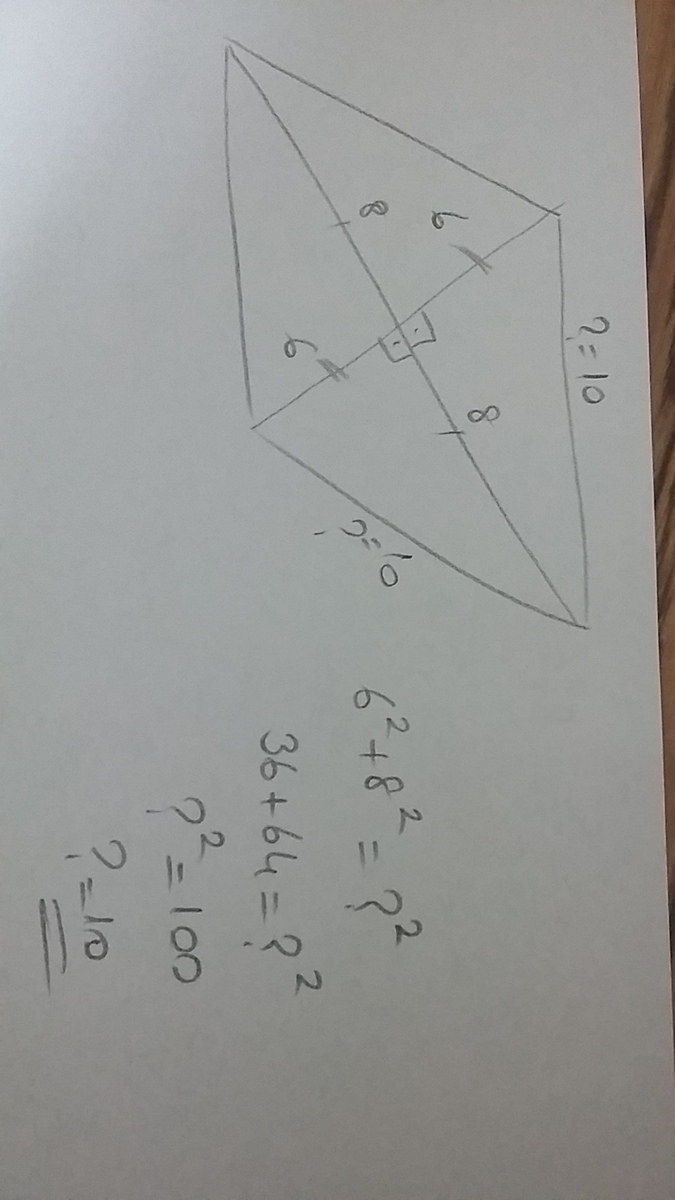 ?=10
8
6
8
6
?=10
6²+8²=?²
36+64=?²
?²=100
?=10